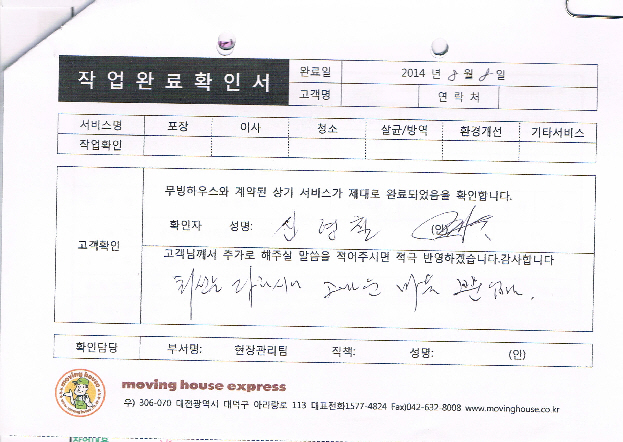 작업완료확인서
완료일 2014 년 8 월 8 일
고객명 연락처
서비스명 포장 이사 청소 살균/방역 환경개선 기타서비스
작업확인
무빙하우스와 계약된 상기 서비스가 제대로 완료되었음을 확인합니다.
고객확인
확인자 성명: 심영철 (인)
고객님께서 추가로 해주실 말씀을 적어주시면 적극 반영하겠습니다.감사합니다
최선을 다하시는
확인담당 부서명: 현장관리팀 직책: 성명: (인)
moving house
moving house express
우) 306-070 대전광역시 대덕구 아리랑로 113 대표전화1577-4824 Fax)042-632-8008 www.movinghouse.co.kr